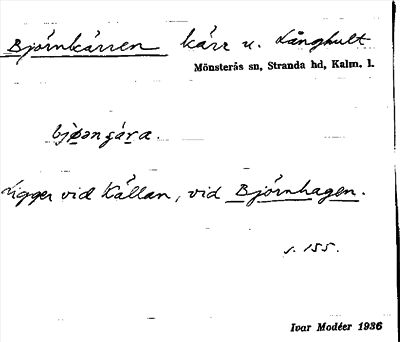 Björnkärren kärr u. Långhult
Mönsterås sn, Stranda hd, Kalm. l.
bjøənȷára.
Ligger vid Källan, vid Björnhagen.
s. 155.
Ivar Modéer 1936